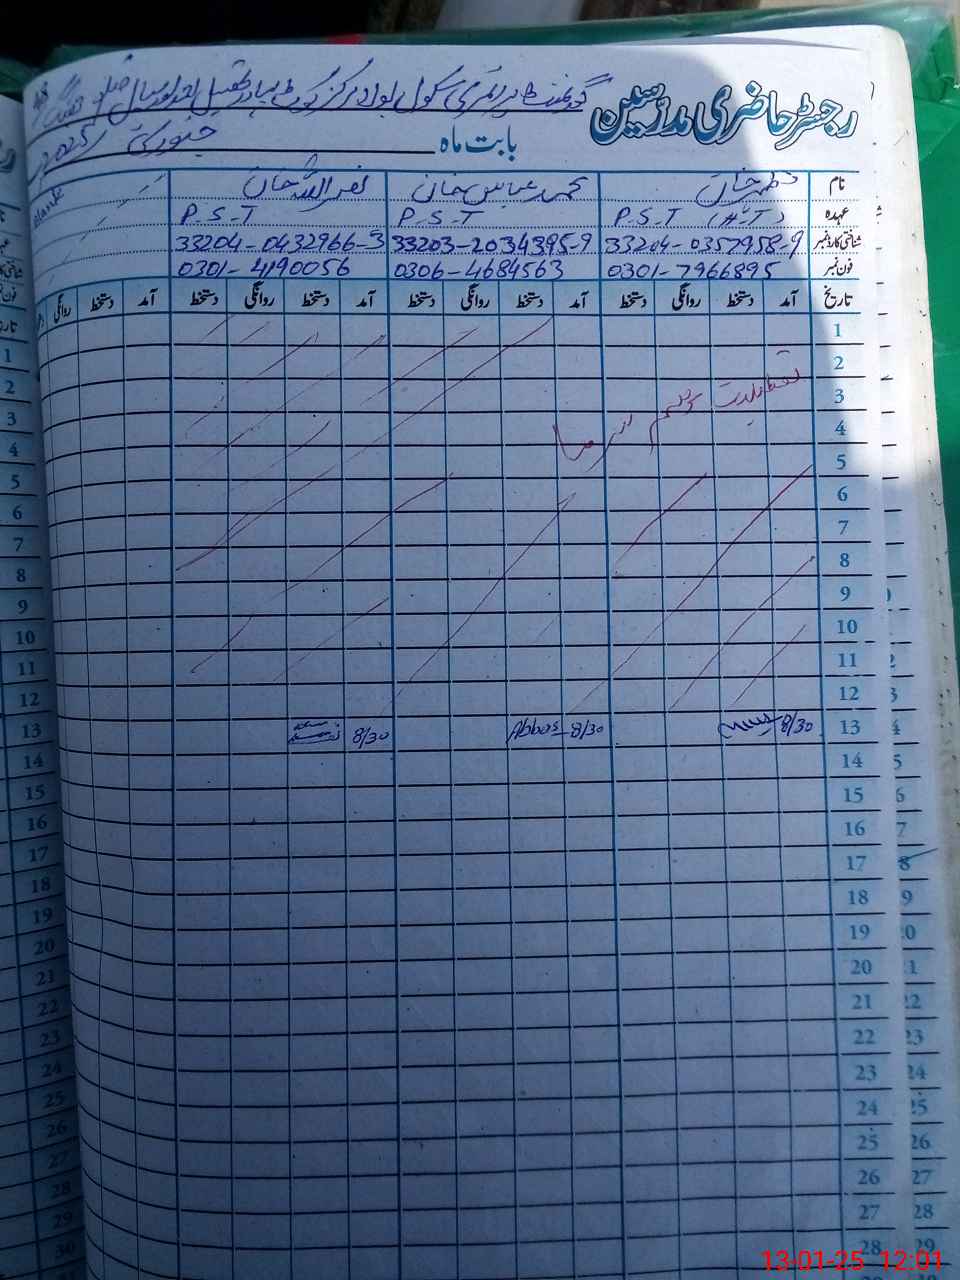 رجسٹر حاضری مدرسین
گورنمنٹ پرائمری سکول
بابت ماہ جنوری 2025
نام محمد عباس خان نصر اللہ خان
عہدہ P.S.T (H.T) P.S.T P.S.T
شناختی کارڈ نمبر 33204-0357958-9 33203-2034395-9 33204-0432966-3
فون نمبر 0301-7966895 0306-4684563 0301-4190056
تاریخ آمد دستخط روانگی دستخط آمد دستخط روانگی دستخط آمد دستخط روانگی دستخط آمد دستخط روانگی
1
2
3
تعطیلات موسم سرما
4
5
6
7
8
9
10
11
12
13 8/30 8/30 Abbas 8/30
14
15
16
17
18
19
20
21
22
23
24
25
26
27
28
13-01-25 12:01